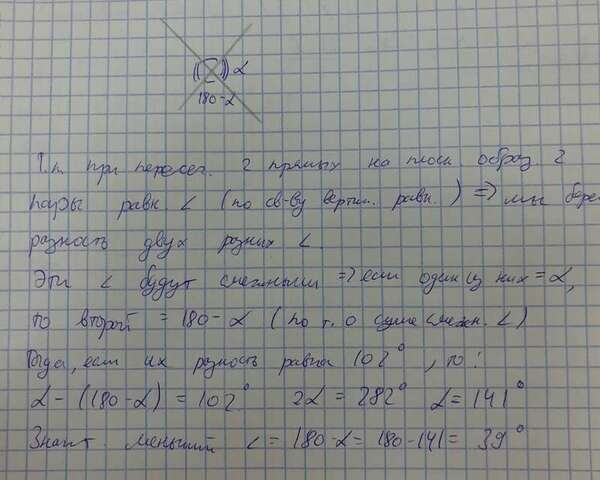 α
180-α
Т.к. при пересеч. 2 прямых на плоск. образ. 2
пары равн ∠ (по св-ву вертик. равн.) => мы берем
разность двух разных ∠.
Эти ∠ будут смежными => если один из них = α,
то второй = 180 - α (по т. о сумме смежн. ∠)
Тогда, если их разность равна 102°, то:
α - (180-α) = 102° 2α = 282° α = 141°
Значит меньший ∠ = 180-α = 180-141 = 39°